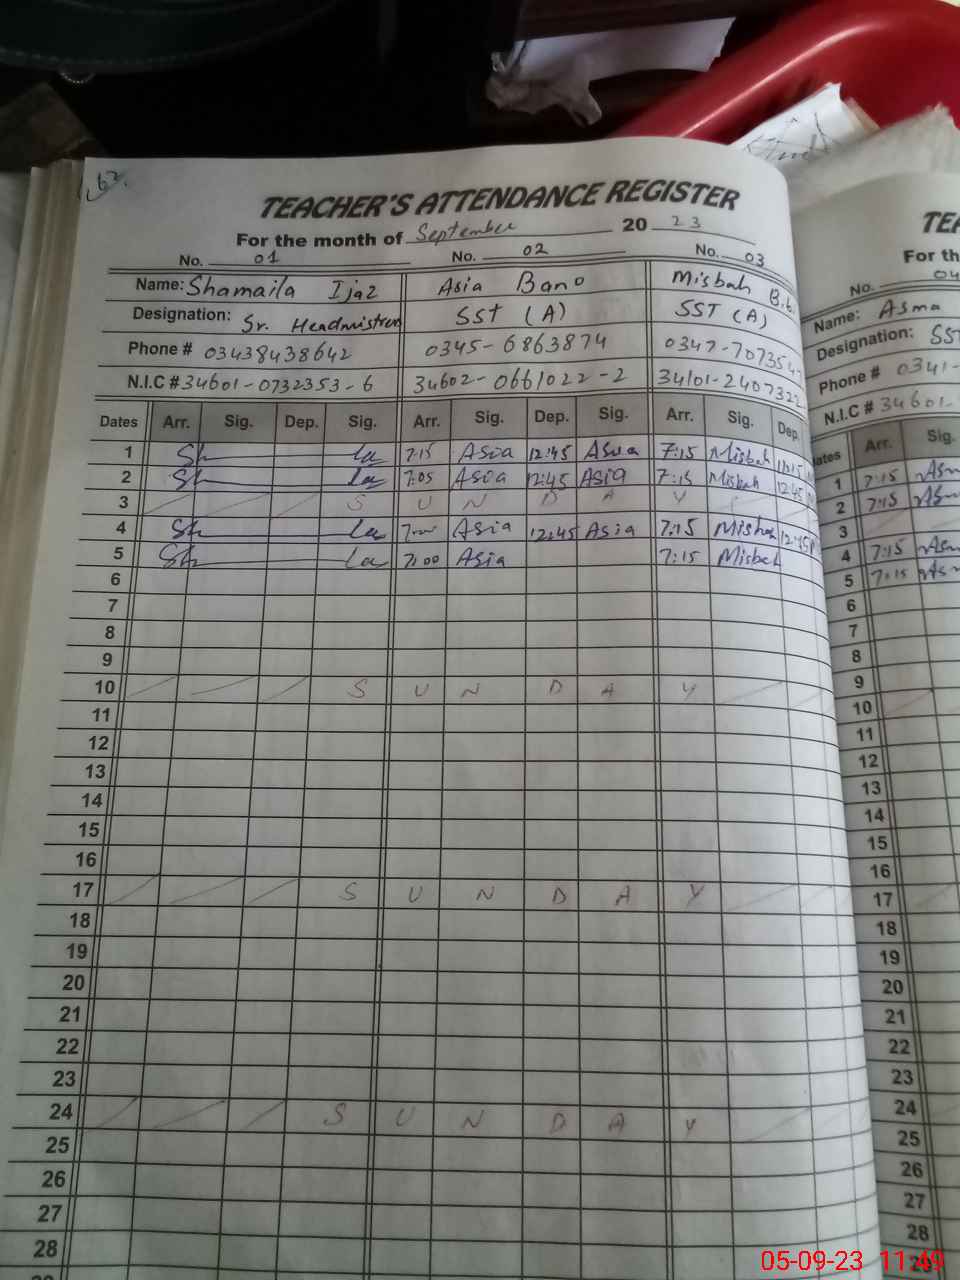 62
TEACHER'S ATTENDANCE REGISTER
For the month of September 20 23
No. 01 No. 02 No. 03
Name: Shamaila Ijaz Asia Bano Misbah B.b.
Designation: Sr. Headmistress SST (A) SST (A)
Phone # 03438438642 0345-6863874 0347-707354
N.I.C # 34601-0732353-6 34602-0661022-2 34101-2407322
Dates Arr. Sig. Dep. Sig. Arr. Sig. Dep. Sig. Arr. Sig. Dep.
1 Sh la 7:15 Asia 12:45 Asia 7:15 Misbah
2 Sh la 7:05 Asia 12:45 Asia 7:15 Misbah 12:45
3 S U N D A Y
4 Sh la Asia 12:45 Asia 7:15 Misbah 12:45
5 Sh la 7:00 Asia 7:15 Misbah
6
7
8
9
10 S U N D A Y
11
12
13
14
15
16
17 S U N D A Y
18
19
20
21
22
23
24 S U N D A Y
25
26
27
28
TE
For th
No. 04
Name: Asma
Designation: SST
Phone # 0341-
N.I.C # 34601-
ates Arr. Sig.
1 7:15 Asm
2 7:15 Asm
3
4 7:15 Asm
5 7:15 Asm
6
7
8
9
10
11
12
13
14
15
16
17
18
19
20
21
22
23
24
25
26
27
28
05-09-23 11:49